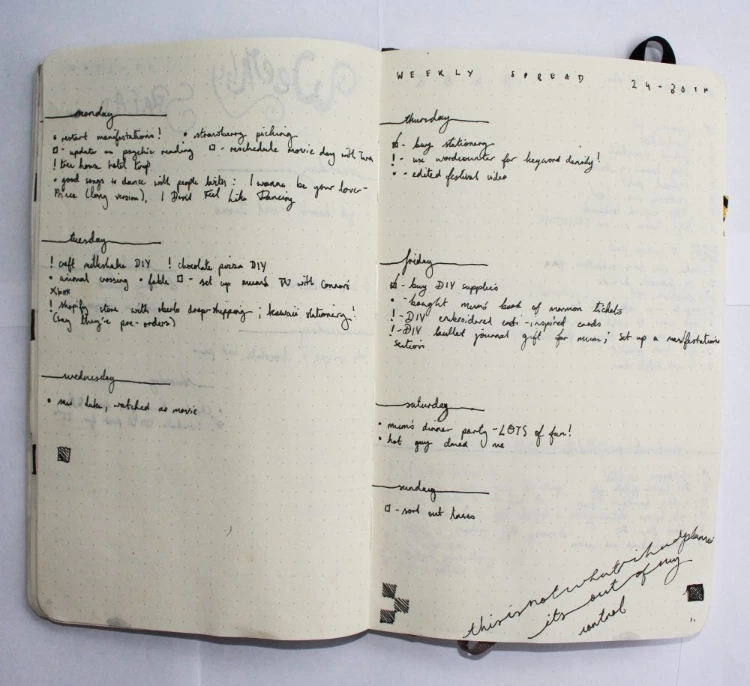 monday
• restart manifestations! • strawberry picking
□ - update on psychic reading □ - reschedule movie day with
! tree house hotel trip
• good songs to dance with people with: I wanna be your lover-
(long version), I Don't Feel Like Dancing
tuesday
! craft milkshake DIY ! chocolate pizza DIY
• animal crossing • fable □ - set up mum's TV with Connor's
xbox
! shopify store with oberlo dropshipping; kawaii stationery!
(say they're pre-orders)
wednesday
• met Luke, watched a movie
WEEKLY SPREAD 24-30TH
thursday
- buy stationery
! - use wordcounter for keyword density!
• - edited festival video
friday
- buy DIY supplies
• - bought mum's book of mormon tickets
! - DIY embroidered -inspired cards
! - DIY bullet journal gift for mum; set up a manifestations
section
saturday
• mum's dinner party - LOTS of fun!
• hot guy dmed me
sunday
□ - sort out taxes
this is not what i had planned
its out of my
control